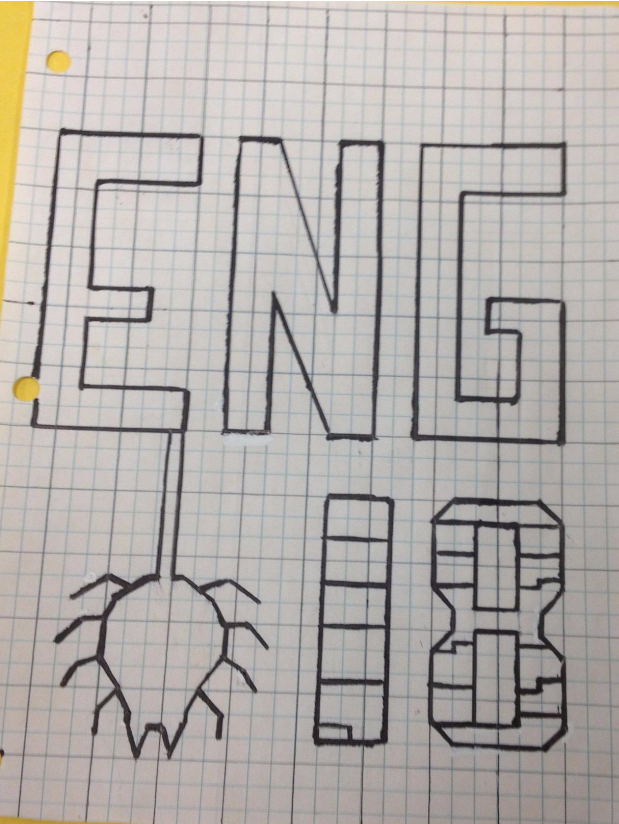 ENG
18